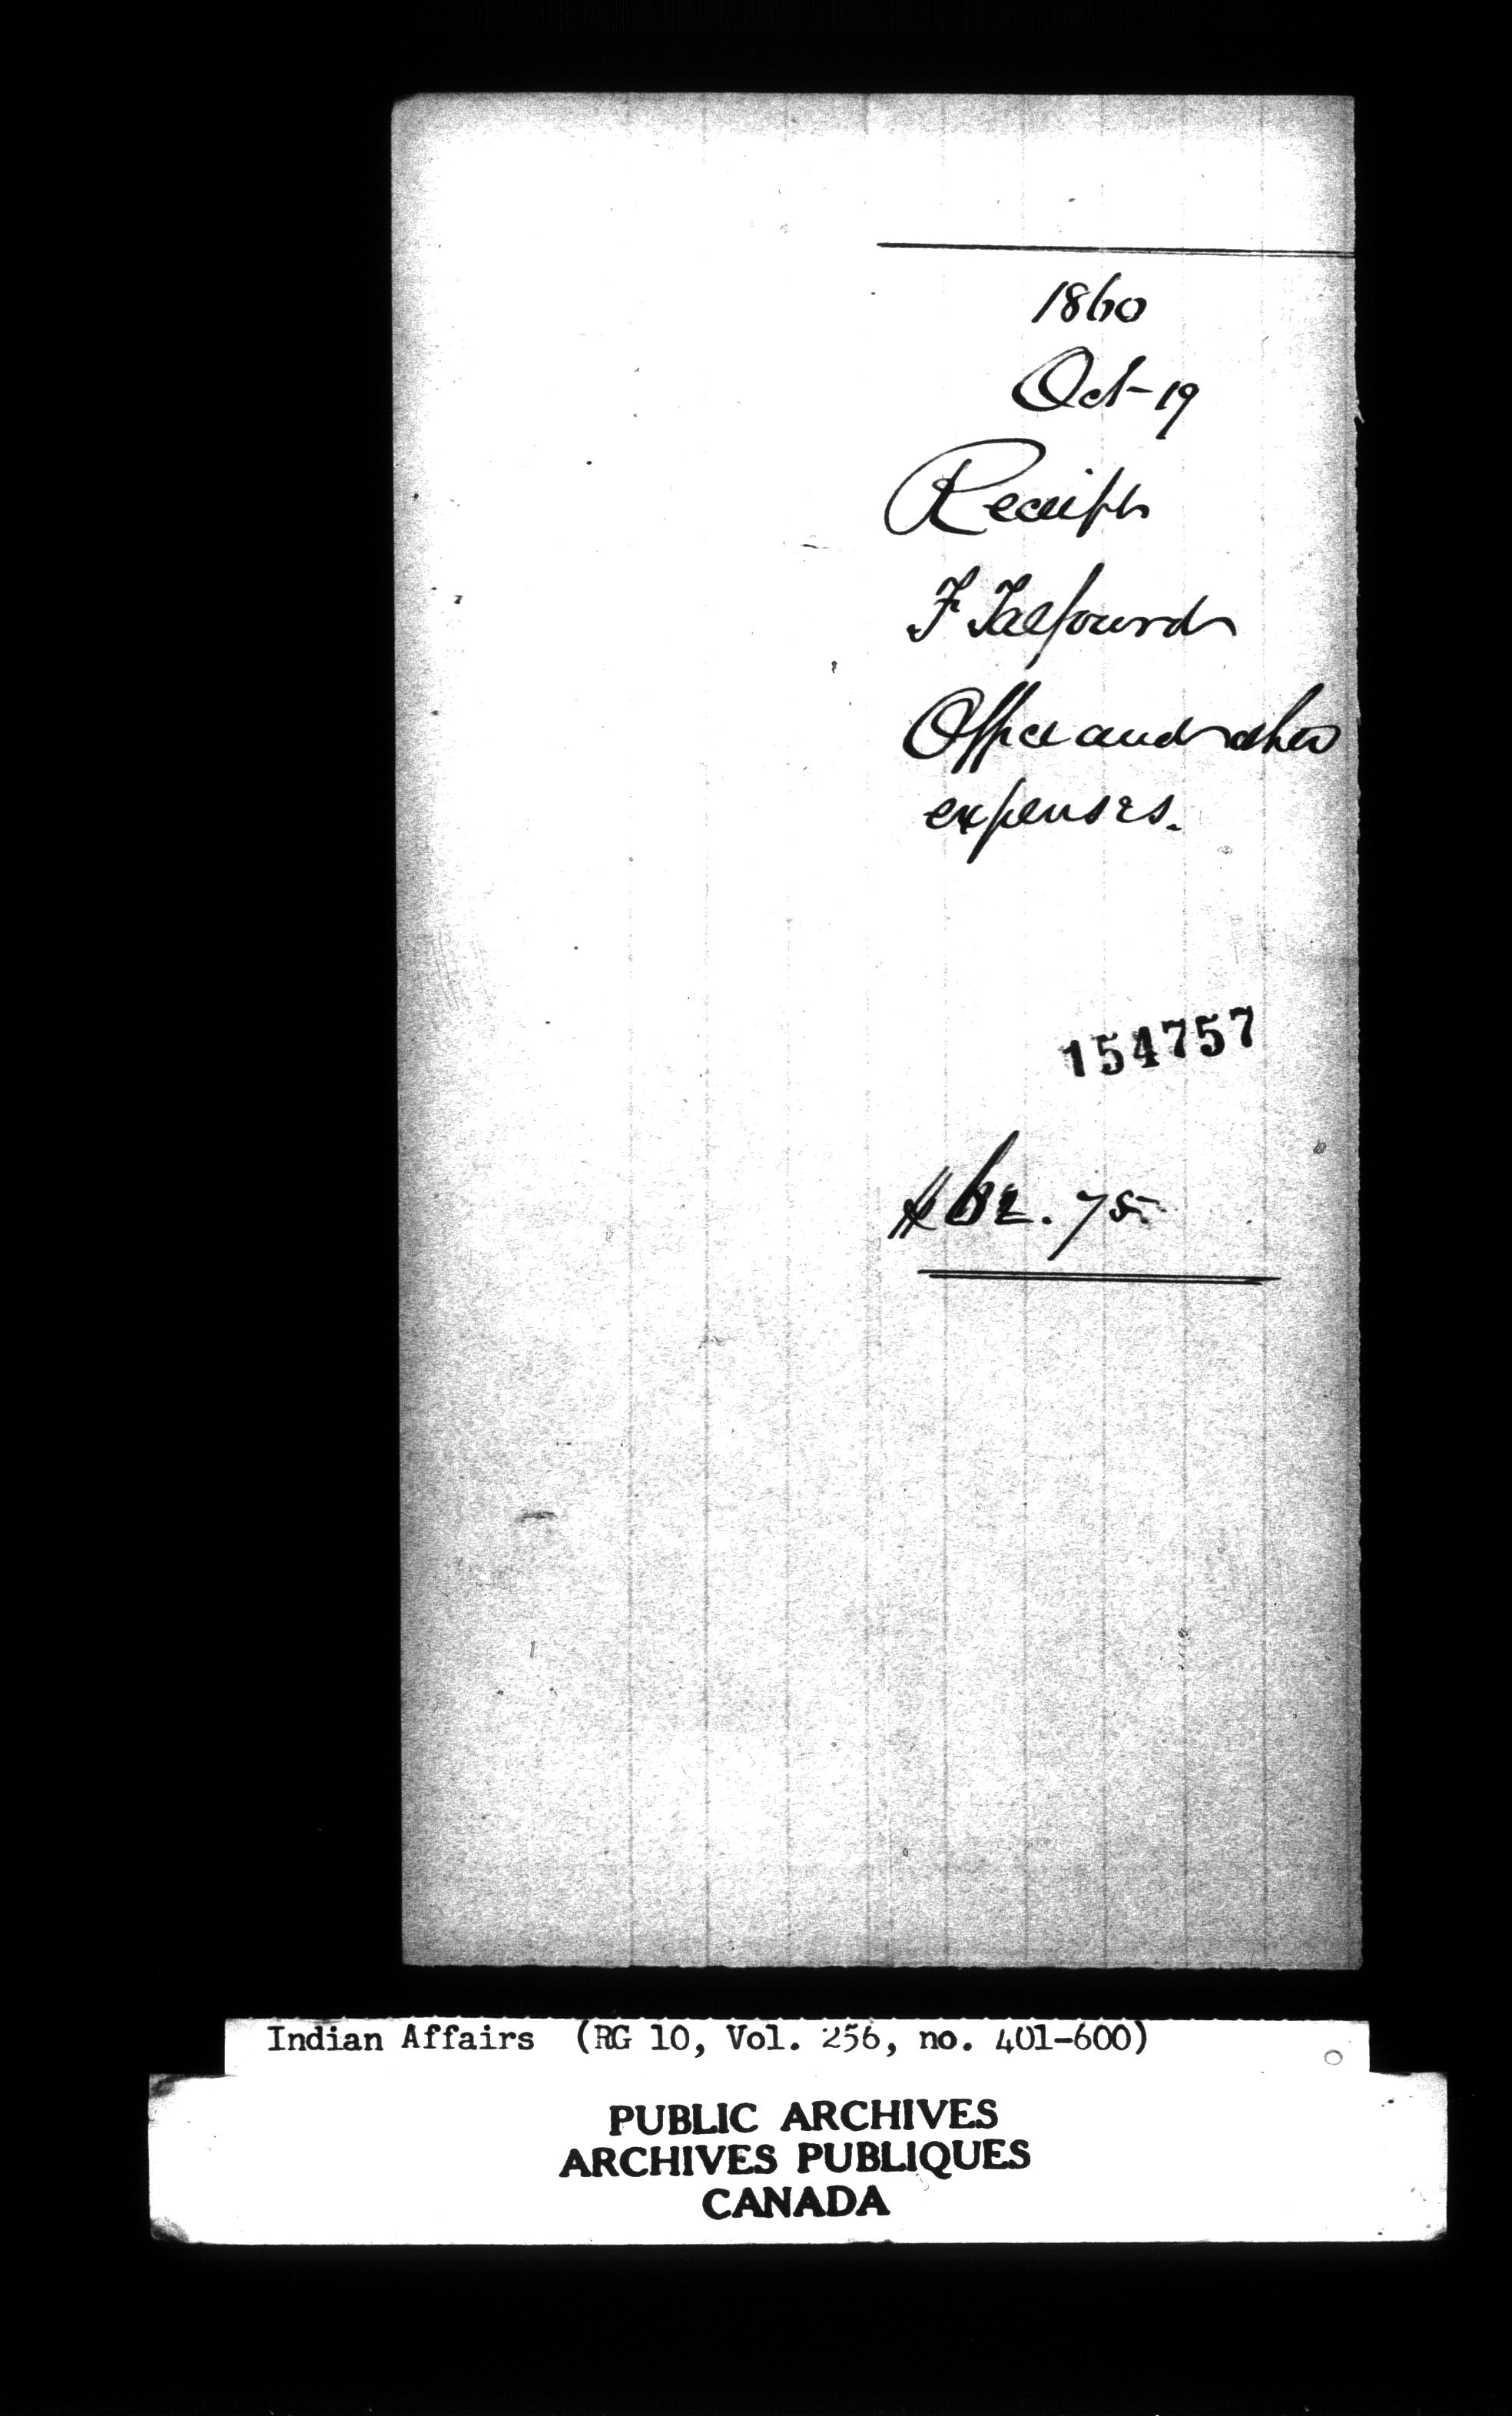 1860
Oct-19
Receipts
F Talfourd
Office and other
expenses.
154757
$62.75
Indian Affairs (RG 10, Vol. 256, no. 401-600)
PUBLIC ARCHIVES
ARCHIVES PUBLIQUES
CANADA